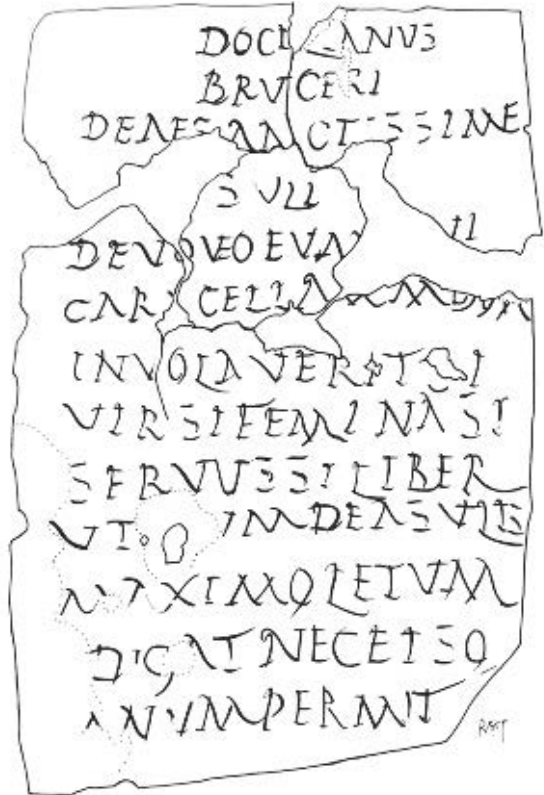 DOCILIANVS
BRVCERI
DEAESANCTISSIME
SVLI
DEVOVEOEVM
CAR CELLAM
INVOLAVERIT SI
VIRSIFEMINASI
SERVVSSILIBER
VT VMDEASVLIS
MAXIMOLETVM
DIGATNECEISO
MNVMPERMIT